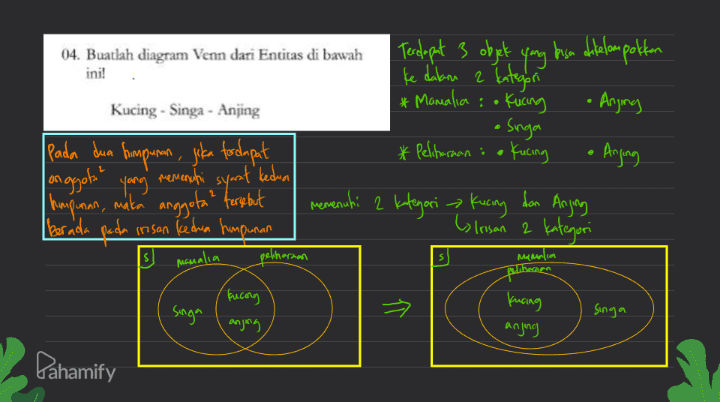 04. Buatlah diagram Venn dari Entitas di bawah
ini!
Kucing - Singa - Anjing
Terdapat 3 objek yang bisa dikelompokkan
ke dalam 2 kategori
* Mamalia : • Kucing • Anjing
• Singa
* Peliharaan : • Kucing • Anjing
Pada dua himpunan, jika terdapat
anggota² yang memenuhi syarat kedua
himpunan, maka anggota² tersebut
berada pada irisan kedua himpunan
memenuhi 2 kategori → Kucing dan Anjing
↳ Irisan 2 kategori
S mamalia peliharaan
Singa kucing
anjing
⇒
S mamalia
peliharaan
kucing Singa
anjing
Pahamify